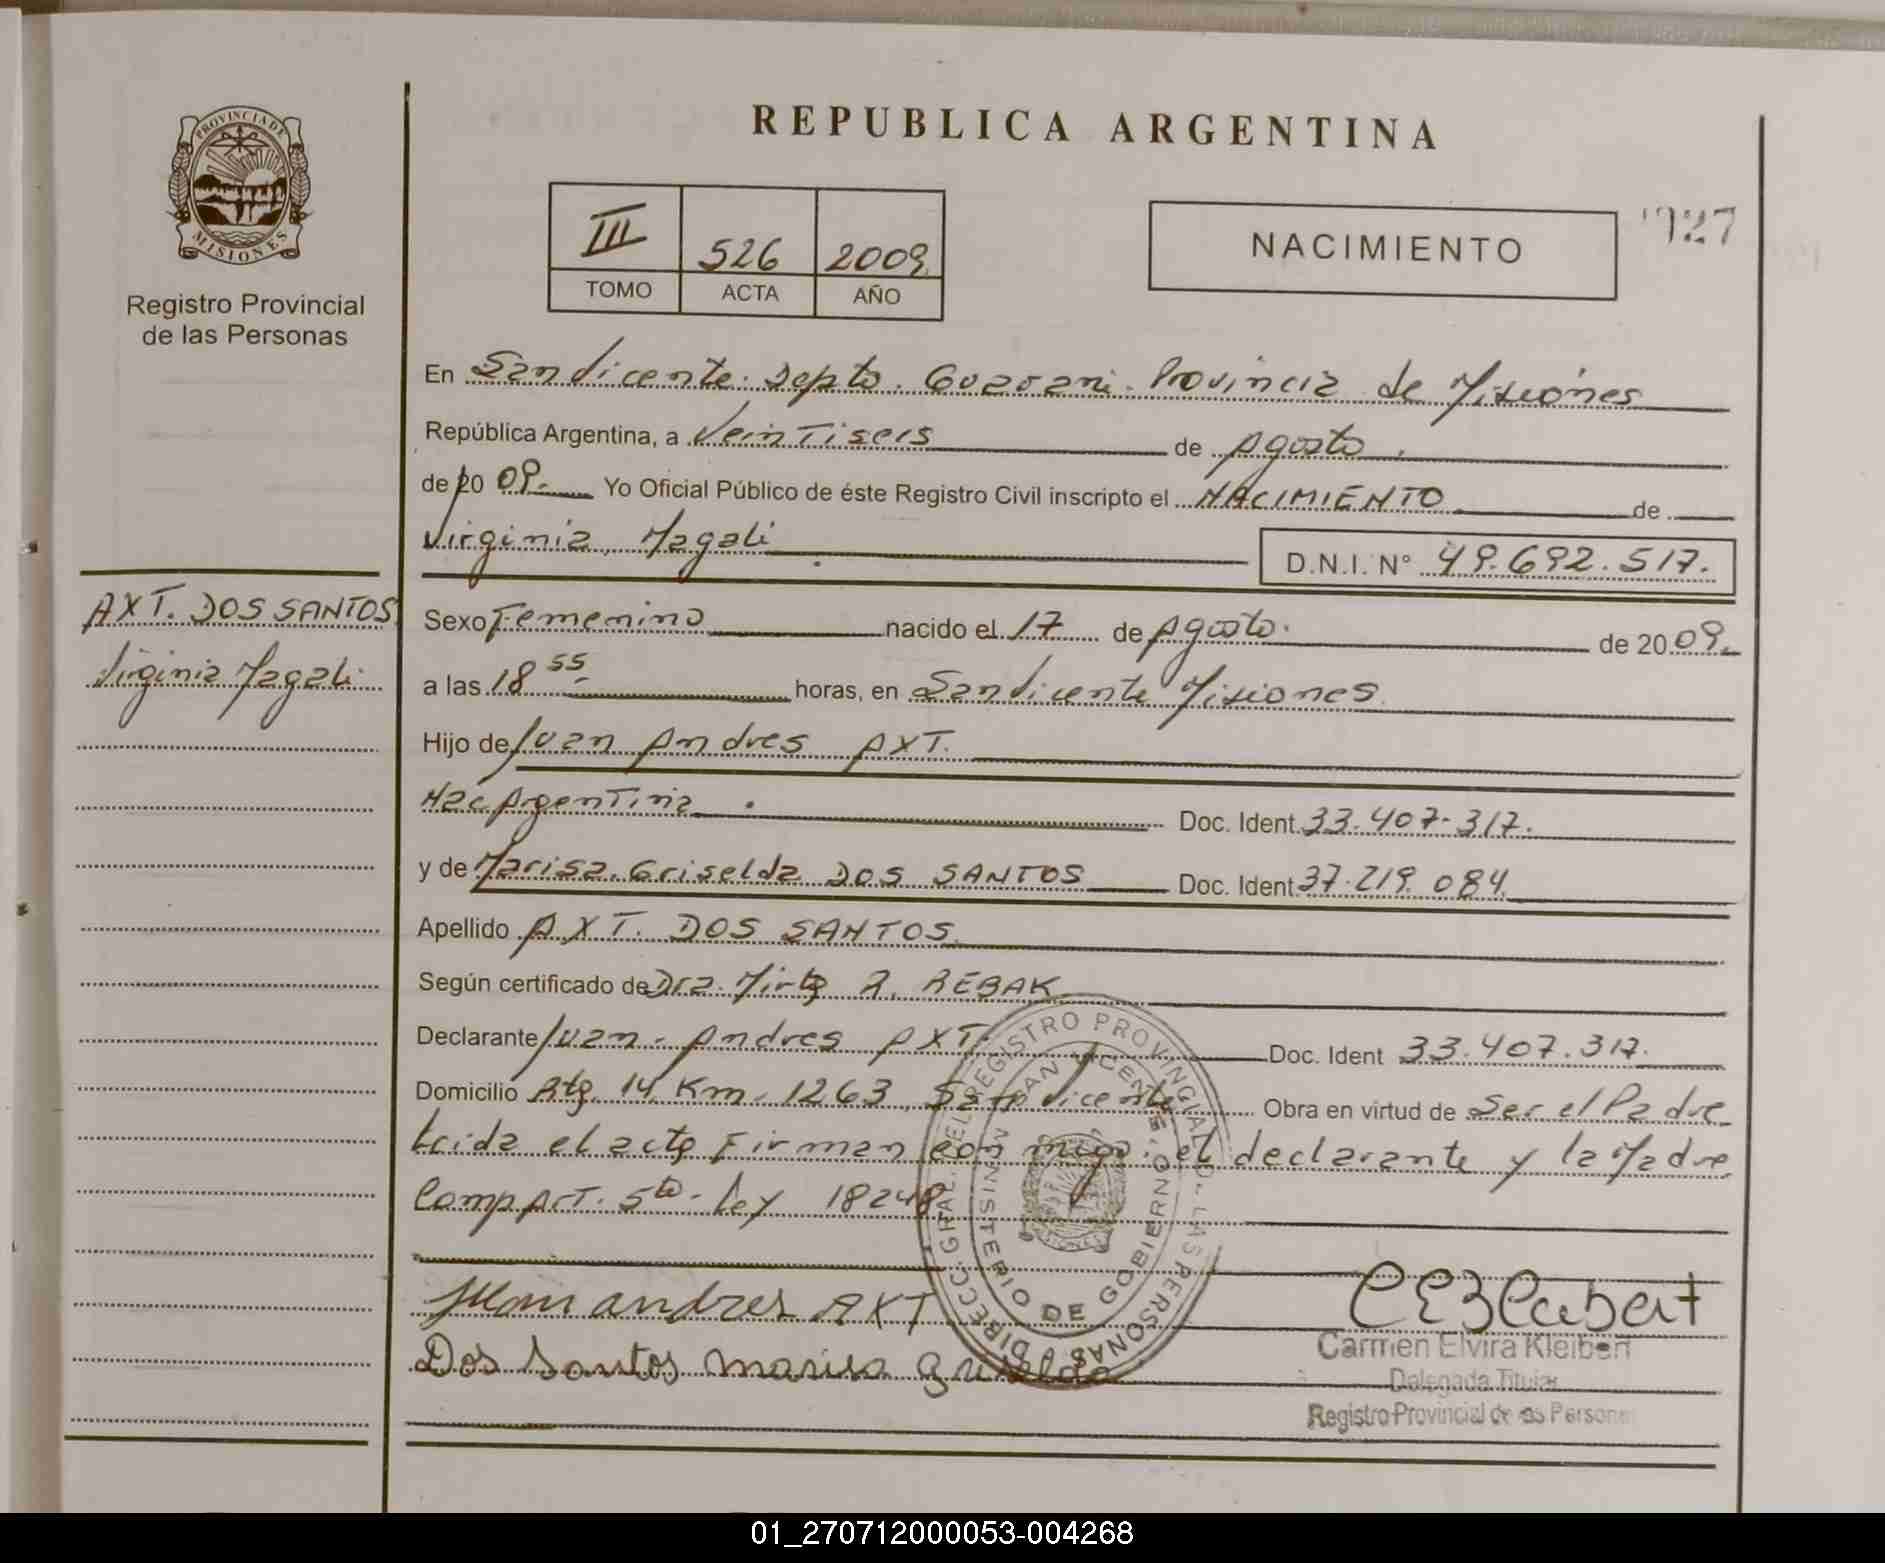 REPUBLICA ARGENTINA
PROVINCIA DE
MISIONES
Registro Provincial
de las Personas
III 526 2009
TOMO ACTA AÑO
NACIMIENTO
927
En San Vicente. Depto. Guarani. Provincia de Misiones
República Argentina, a Veintiseis de Agosto.
de 20 09. Yo Oficial Público de éste Registro Civil inscripto el NACIMIENTO de
Virginia Magali D.N.I. N° 49.692.517.
AXT. DOS SANTOS
Virginia Magali
Sexo Femenino nacido el 17 de Agosto. de 20 09.
a las 18 55 horas, en San Vicente Misiones
Hijo de Juan Andres AXT.
Nac Argentina. Doc. Ident. 33.407.317.
y de Marisa Griselda DOS SANTOS Doc. Ident 37.219.084
Apellido AXT. DOS SANTOS
Según certificado de Dra. Mirta R. REBAK
Declarante Juan Andres AXT. Doc. Ident 33.407.317.
Domicilio Rta. 14 Km. 1263 San Vicente Obra en virtud de Ser el Padre
Leida el acta Firman con migo. el declarante y la Madre
Comp Art. 5to. Ley 18248
Juan andres AXT
Dos Santos marisa griselda
DIRECC. GRAL. DEL REGISTRO PROVINCIAL DE LAS PERSONAS
SAN VICENTE
MINISTERIO DE GOBIERNO
Carmen Elvira Kleibert
Delegada Titular
Registro Provincial de las Personas
01_270712000053-004268